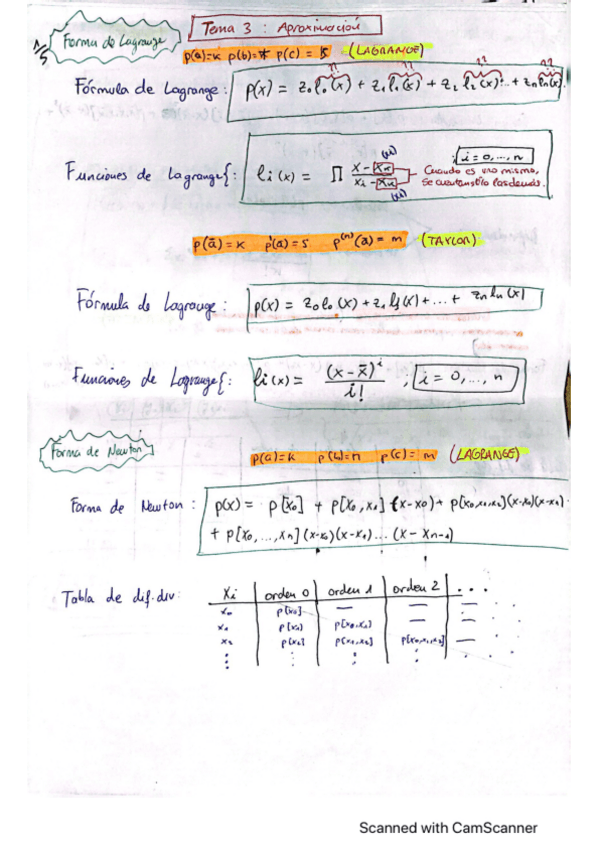 1/5
Forma de Lagrange
Tema 3 : Aproximación
p(a)=k p(b)=* p(c) = (LAGRANGE)
Fórmula de Lagrange : p(x) = z₀l₀(x) + z₁l₁(x) + z₂ l₂(x)... + znln(x).
Funciones de Lagrange{: li(x) = ∏ x - xk / xi - xk ; i = 0,...,n
Cuando es uno mismo,
se cuentan sólo los demás.
p(a)=k p'(a)=s p⁽ⁿ⁾(a)= m (TAYLOR)
Fórmula de Lagrange : p(x) = z₀l₀(x) + z₁l₁(x) + ... + znln(x)
Funciones de Lagrange{: li(x) = (x-x̄)ⁱ / i! ; i = 0,...,n
Forma de Newton
p(a)=k p(b)=n p(c)= m (LAGRANGE)
Forma de Newton : p(x) = p[x₀] + p[x₀,x₁](x-x₀) + p[x₀,x₁,x₂](x-x₀)(x-x₁).
+ p[x₀,...,xn](x-x₀)(x-x₁)... (x-xn-1)
Tabla de dif.div: xi orden 0 orden 1 orden 2 ...
x₀ p[x₀] — —
x₁ p[x₁] p[x₀,x₁] —
x₂ p[x₂] p[x₁,x₂] p[x₀,x₁,x₂] —
Scanned with CamScanner